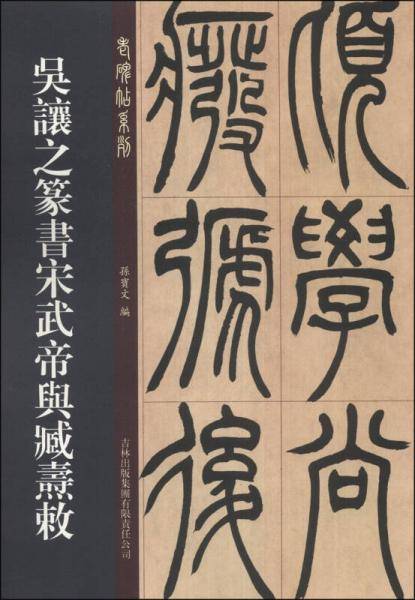 頃學尚
廢弛後
老碑帖系列
孫寶文 編
吉林出版集團有限責任公司
吳讓之篆書宋武帝與臧燾敕